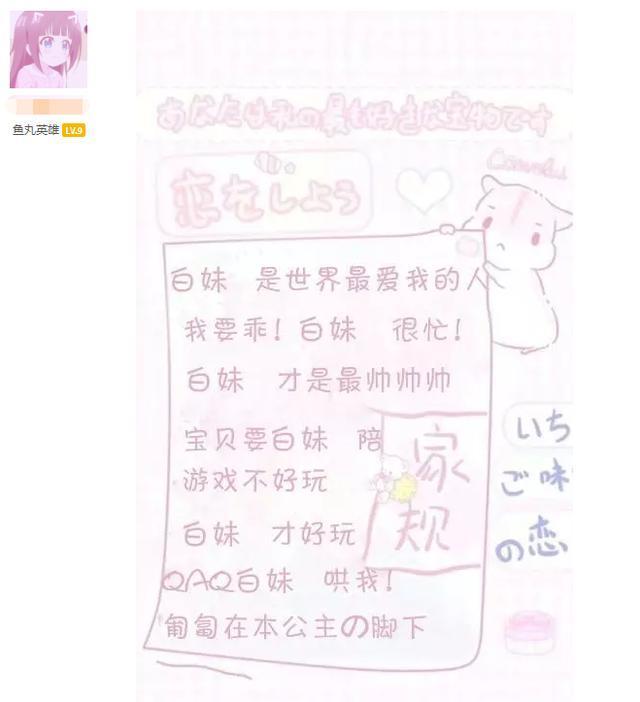 鱼丸英雄 LV.9
あなたは私の最も好きな宝物です
恋をしよう
白妹 是世界最爱我的人
我要乖！白妹 很忙！
白妹 才是最帅帅帅
宝贝要白妹 陪
游戏不好玩
白妹 才好玩
QAQ白妹 哄我！
匍匐在本公主の脚下
家
规
いち
ご味
の恋